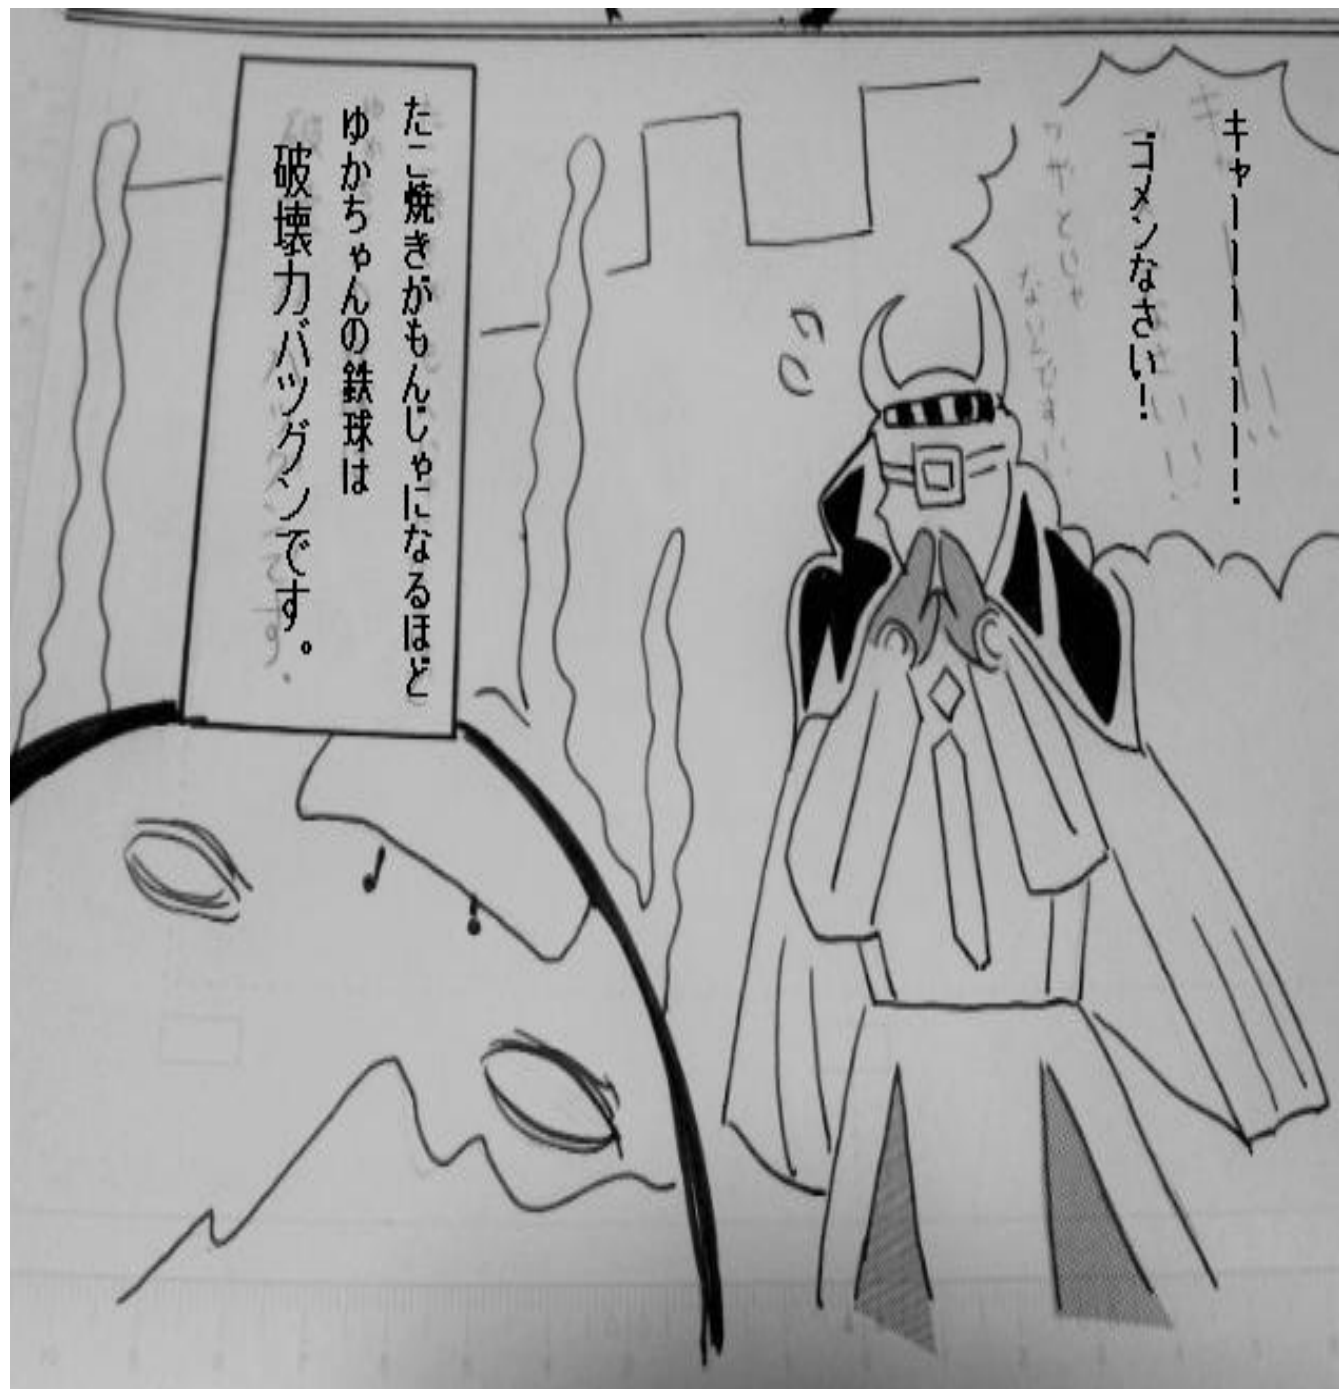 キャーーーーーーー!
ゴメンなさい!
たこ焼きがもんじゃになるほど
ゆかちゃんの鉄球は
破壊力バツグンです。